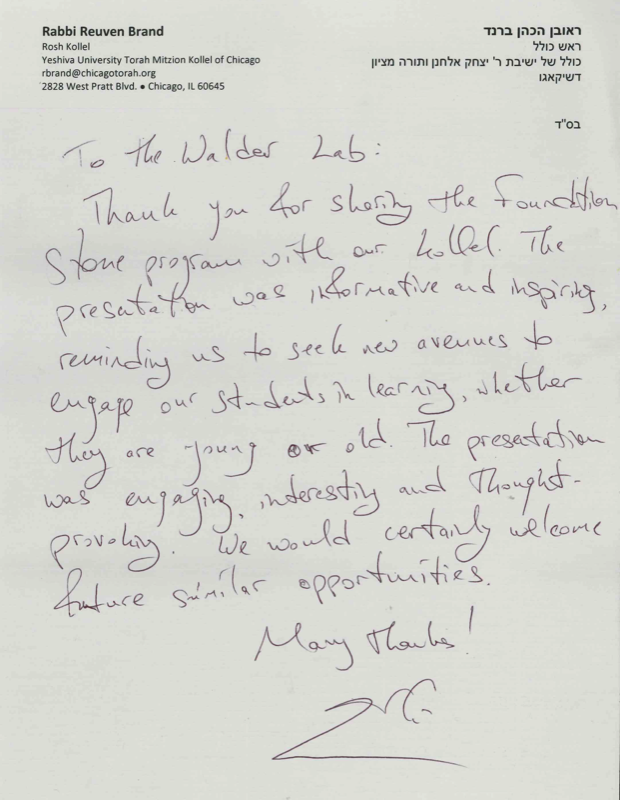 Rabbi Reuven Brand
Rosh Kollel
Yeshiva University Torah Mitzion Kollel of Chicago
rbrand@chicagotorah.org
2828 West Pratt Blvd. ● Chicago, IL 60645
ראובן הכהן ברנד
ראש כולל
כולל של ישיבת ר' יצחק אלחנן ותורה מציון
דשיקאגו
בס"ד
To the Walder Lab:
Thank you for sharing the Foundation
Stone program with our kollel. The
presentation was informative and inspiring,
reminding us to seek new avenues to
engage our students in learning, whether
they are young or old. The presentation
was engaging, interesting and thought-
provoking. We would certainly welcome
future similar opportunities.
Many thanks!